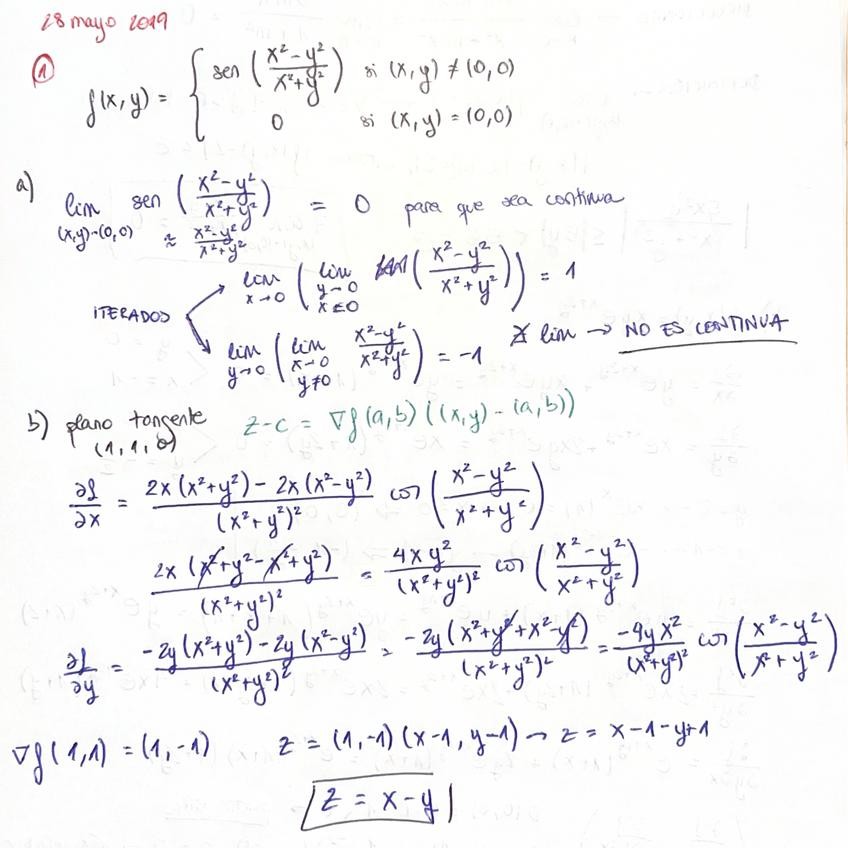 28 mayo 2019
① f(x,y) = { sen ( (x²-y²)/(x²+y²) ) si (x,y) ≠ (0,0)
0 si (x,y) = (0,0)
a) lim (x,y)→(0,0) sen ( (x²-y²)/(x²+y²) ) = 0 para que sea continua
≈ (x²-y²)/(x²+y²)
ITERADOS
lim x→0 ( lim y→0 x≠0 ( (x²-y²)/(x²+y²) ) ) = 1
lim y→0 ( lim x→0 y≠0 (x²-y²)/(x²+y²) ) = -1 ∄ lim → NO ES CONTINUA
b) plano tangente z-c = ∇f(a,b) ((x,y) - (a,b))
(1,1,0)
∂f/∂x = (2x(x²+y²) - 2x(x²-y²))/(x²+y²)² cos ( (x²-y²)/(x²+y²) )
(2x(x²+y²-x²+y²))/(x²+y²)² = 4xy²/(x²+y²)² cos ( (x²-y²)/(x²+y²) )
∂f/∂y = (-2y(x²+y²) - 2y(x²-y²))/(x²+y²)² = (-2y(x²+y²+x²-y²))/(x²+y²)² = -4yx²/(x²+y²)² cos ( (x²-y²)/(x²+y²) )
∇f(1,1) = (1,-1) z = (1,-1)(x-1, y-1) → z = x-1-y+1
z = x-y